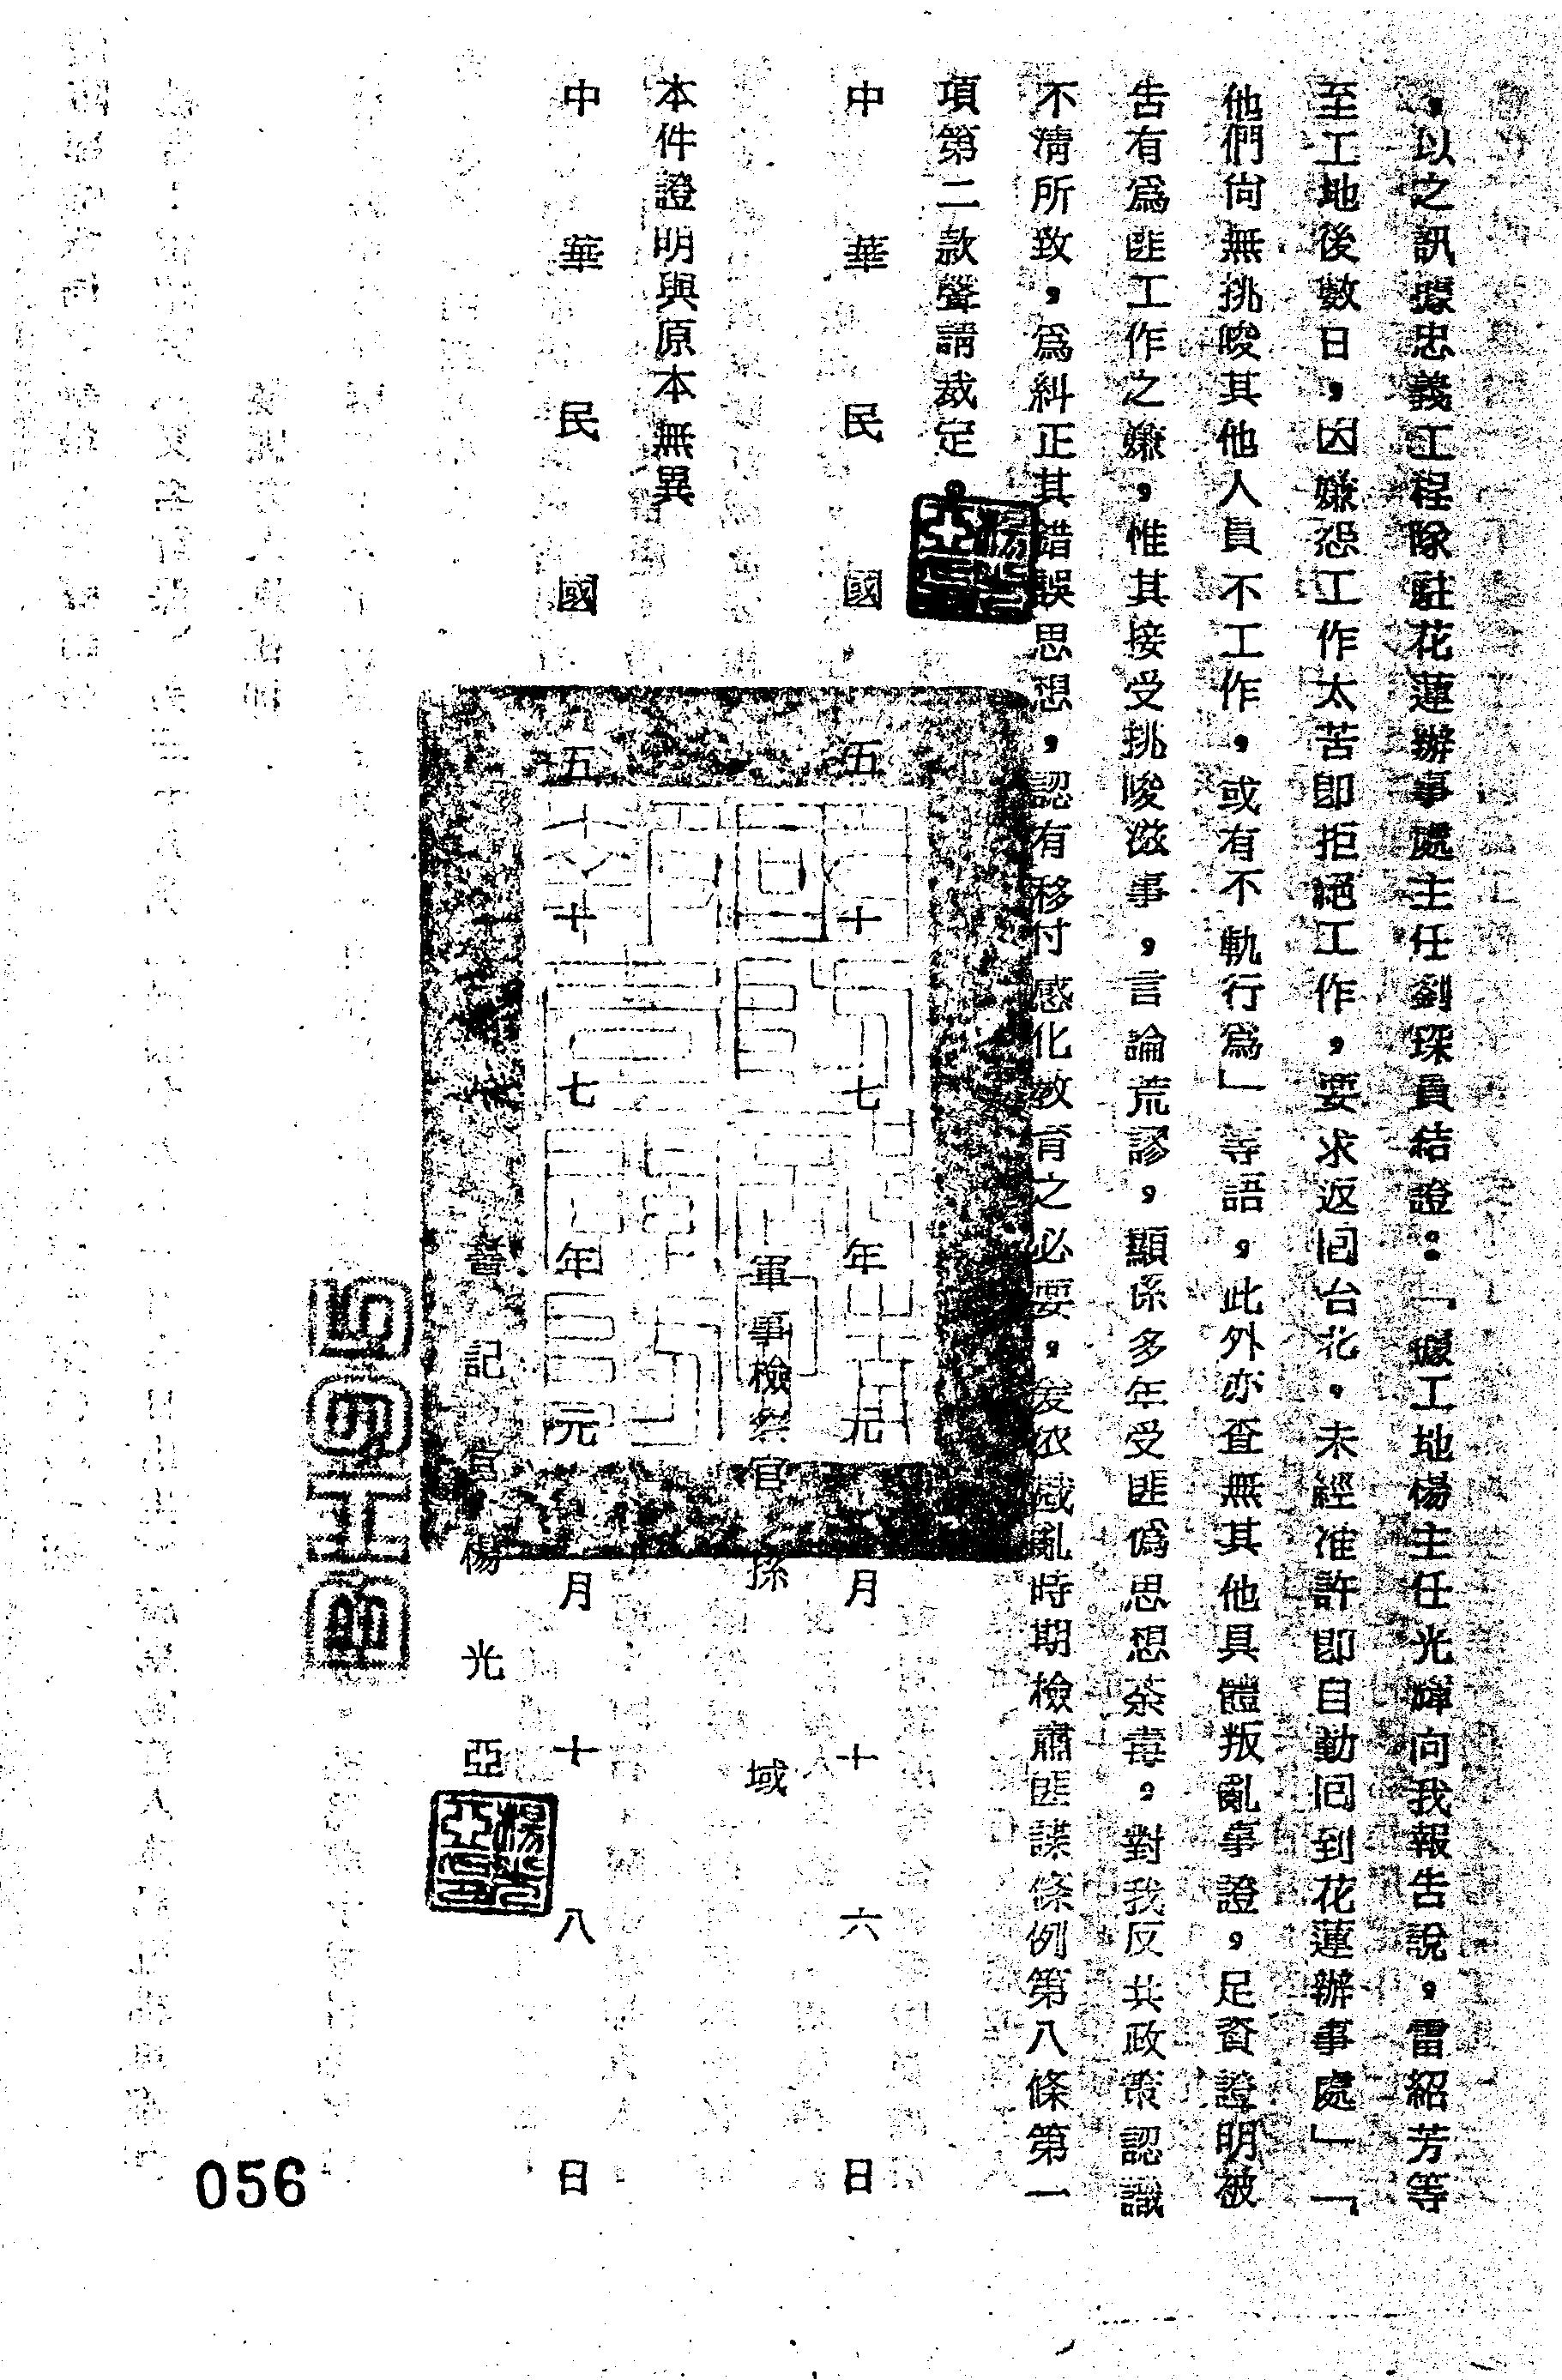 ，以之訊據忠義工程隊駐花蓮辦事處主任劉琛員結證：「據工地楊主任光暉向我報告說，雷紹芳等
至工地後數日，因嫌怨工作太苦卽拒絕工作，要求返囘台北，未經准許卽自動囘到花蓮辦事處」「
他們尙無挑唆其他人員不工作，或有不軌行爲」等語，此外亦查無其他具體叛亂事證，足資證明被
告有爲匪工作之嫌，惟其接受挑唆滋事，言論荒謬，顯係多年受匪僞思想荼毒，對我反共政策認識
不淸所致，爲糾正其錯誤思想，認有移付感化教育之必要，爰依戡亂時期檢肅匪諜條例第八條第一
項第二款聲請裁定。
中華民國五十七年元月十六日
軍事檢察官孫域
本件證明與原本無異
中華民國五十七年元月十八日
書記官楊光亞
056